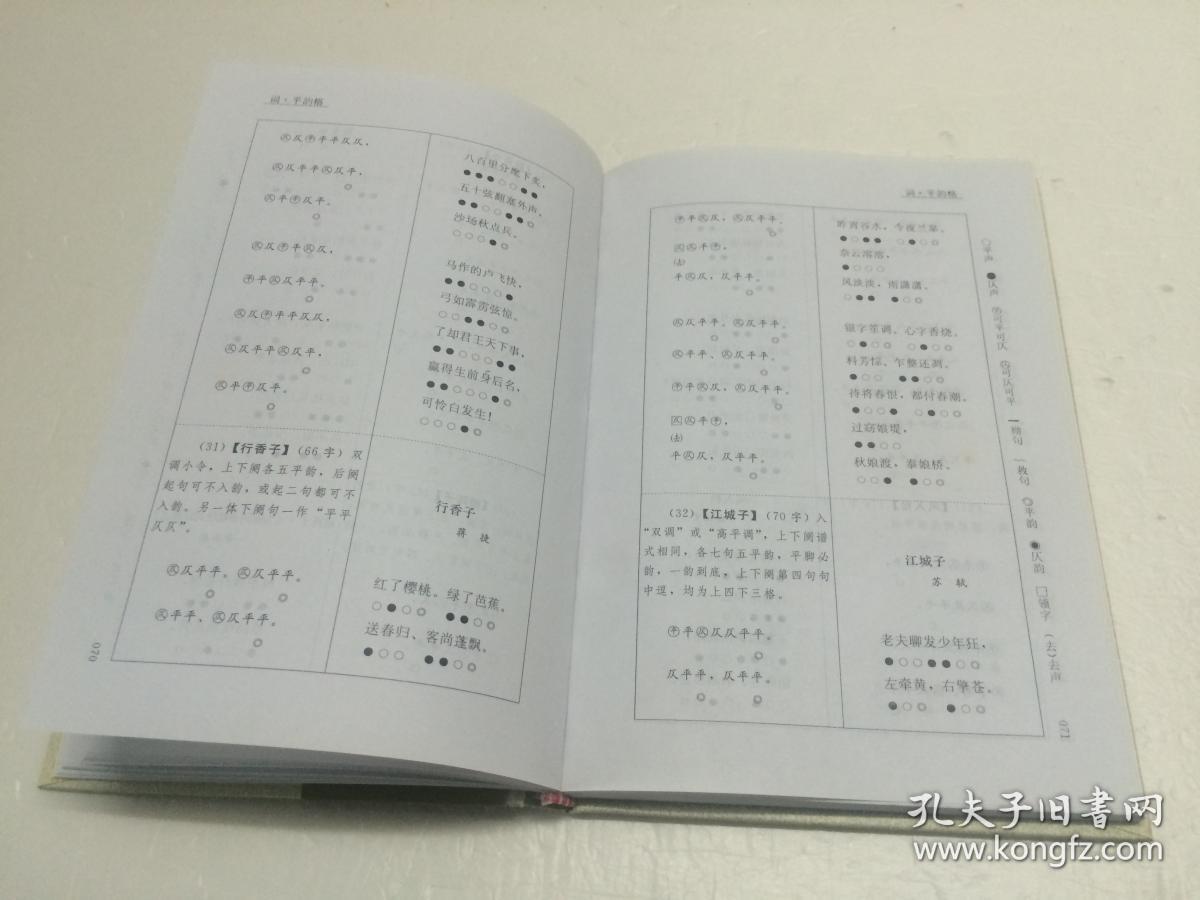 词·平韵格
㊄仄㊉平平仄仄，
㊄仄平平㊄仄平，
㊄平㊉仄平。
㊄仄㊉平㊄仄，
㊉平㊄仄平平。
㊄仄㊉平平仄仄，
㊄仄平平㊄仄平，
㊄平㊉仄平。
八百里分麾下炙，
五十弦翻塞外声。
沙场秋点兵。
马作的卢飞快，
弓如霹雳弦惊。
了却君王天下事，
赢得生前身后名，
可怜白发生！
(31)【行香子】(66字) 双
调小令，上下阕各五平韵，后阕
起句可不入韵，或起二句都可不
入韵。另一体下阕句一作“平平
仄仄”。
行香子
蒋 捷
㊄仄平平。㊄仄平平。
㊄平平、㊄仄平平。
红了樱桃。绿了芭蕉。
送春归、客尚蓬飘。
070
词·平韵格
㊉平㊄仄，㊄仄平平。
(去)
平㊄仄，仄平平。
㊄仄平平、㊄仄平平。
㊄平平、㊄仄平平。
㊉平㊄仄，㊄仄平平。
(去)
平㊄仄，仄平平。
昨宵谷水，今夜兰皋。
奈云溶溶，
风淡淡，雨潇潇。
银字笙调、心字香烧。
料芳悰、乍整还凋。
待将春恨，都付春潮。
过窈娘堤，
秋娘渡，泰娘桥。
(32)【江城子】(70字) 入
“双调”或“高平调”，上下阕谱
式相同，各七句五平韵，平脚必
韵，一韵到底，上下阕第四句句
中逗，均为上四下三格。
江城子
苏 轼
㊉平㊄仄仄平平。
仄平平，仄平平。
老夫聊发少年狂，
左牵黄，右擎苍。
○平声 ●仄声 可平可仄 可仄可平 句 句 ◎平韵 仄韵 □领字 (去)去声
071
孔夫子旧书网
www.kongfz.com